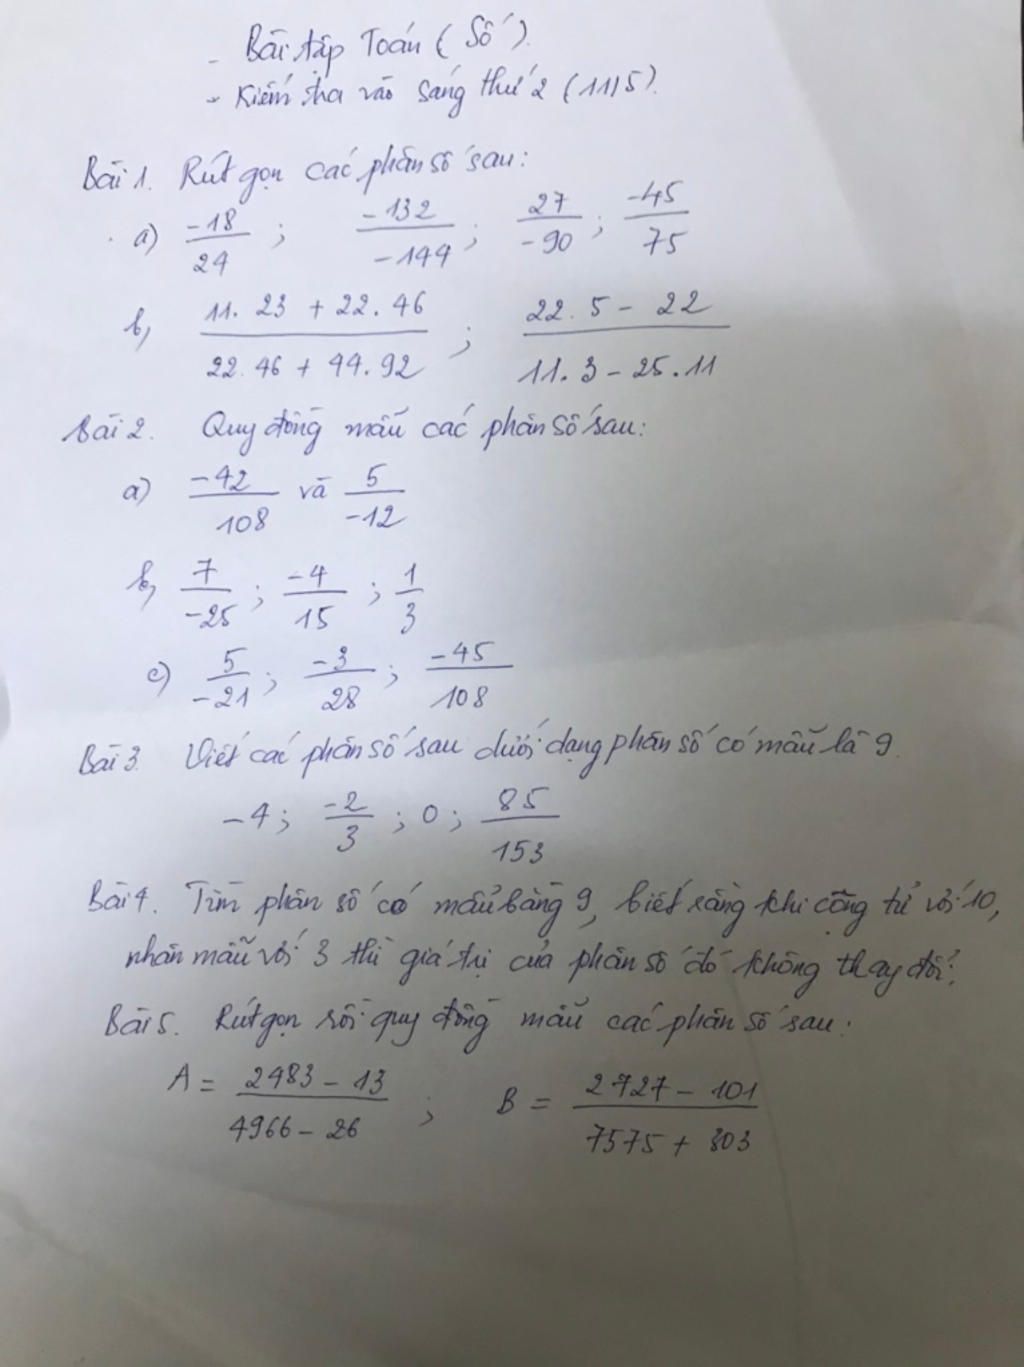 - Bài tập Toán (Số).
- Kiểm tra vào sáng thứ 2 (11/5).
Bài 1. Rút gọn các phân số sau:
a) -18/24 ; -132/-144 ; 27/-90 ; -45/75
b, (11. 23 + 22. 46)/(22. 46 + 44. 92) ; (22. 5 - 22)/(11. 3 - 25. 11)
Bài 2. Quy đồng mẫu các phân số sau:
a) -42/108 và 5/-12
b, 7/-25 ; -4/15 ; 1/3
c) 5/-21 ; -3/28 ; -45/108
Bài 3. Viết các phân số sau dưới dạng phân số có mẫu là 9.
-4 ; -2/3 ; 0 ; 85/153
Bài 4. Tìm phân số có mẫu bằng 9, biết rằng khi cộng tử với 10,
nhân mẫu với 3 thì giá trị của phân số đó không thay đổi?
Bài 5. Rút gọn rồi quy đồng mẫu các phân số sau:
A = (2483 - 13)/(4966 - 26) ; B = (2727 - 101)/(7575 + 303)